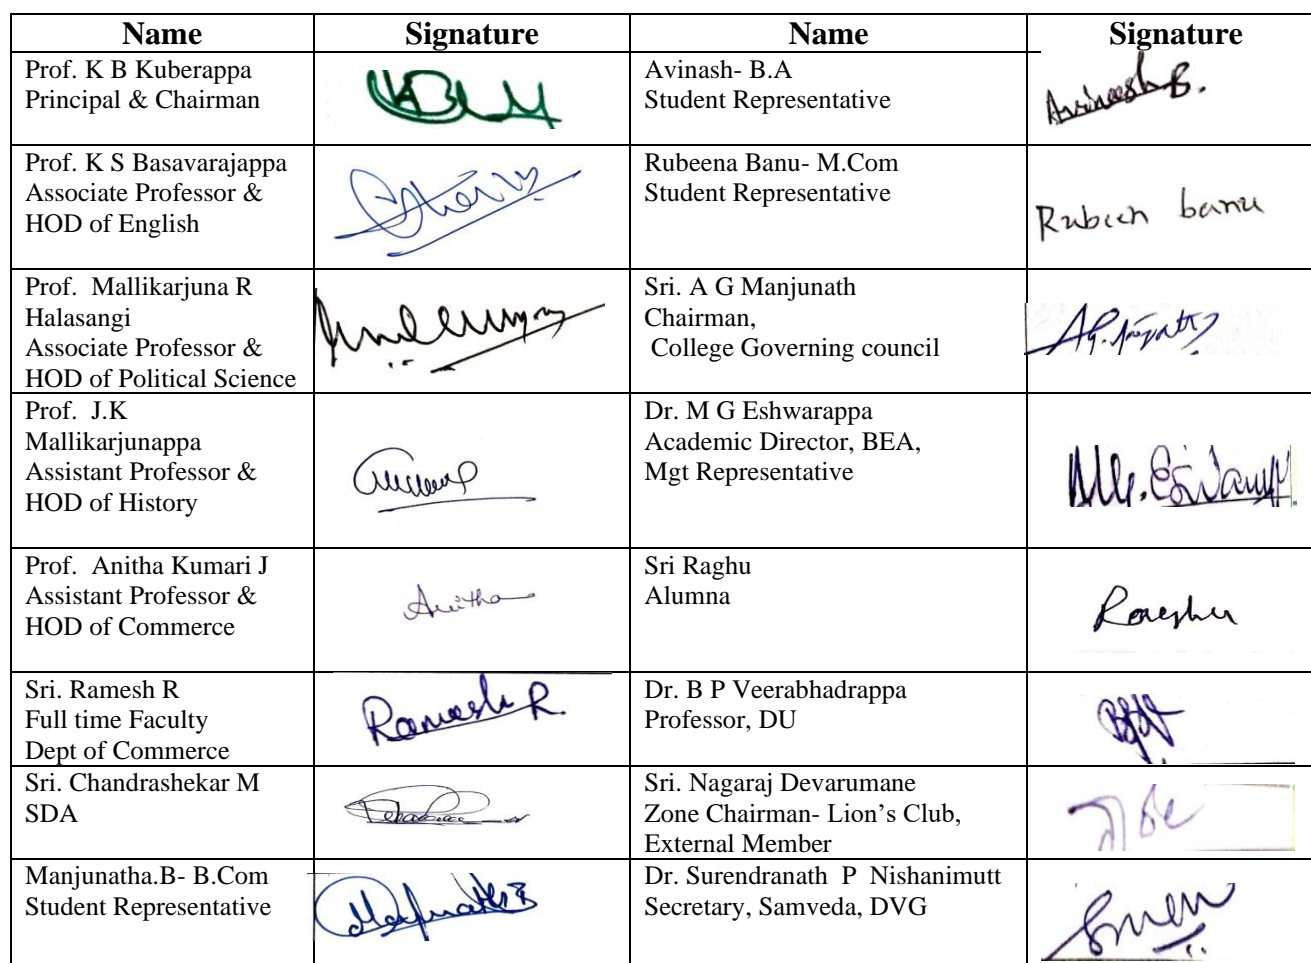 Name Signature Name Signature
Prof. K B Kuberappa
Principal & Chairman
Avinash- B.A
Student Representative
Avinash B.
Prof. K S Basavarajappa
Associate Professor &
HOD of English
Rubeena Banu- M.Com
Student Representative
Rubeen banu
Prof. Mallikarjuna R
Halasangi
Associate Professor &
HOD of Political Science
Sri. A G Manjunath
Chairman,
College Governing council
Prof. J.K
Mallikarjunappa
Assistant Professor &
HOD of History
Dr. M G Eshwarappa
Academic Director, BEA,
Mgt Representative
Prof. Anitha Kumari J
Assistant Professor &
HOD of Commerce
Anitha
Sri Raghu
Alumna
Sri. Ramesh R
Full time Faculty
Dept of Commerce
Ramesh R.
Dr. B P Veerabhadrappa
Professor, DU
Sri. Chandrashekar M
SDA
Sri. Nagaraj Devarumane
Zone Chairman- Lion's Club,
External Member
Manjunatha.B- B.Com
Student Representative
Manjunatha B
Dr. Surendranath P Nishanimutt
Secretary, Samveda, DVG